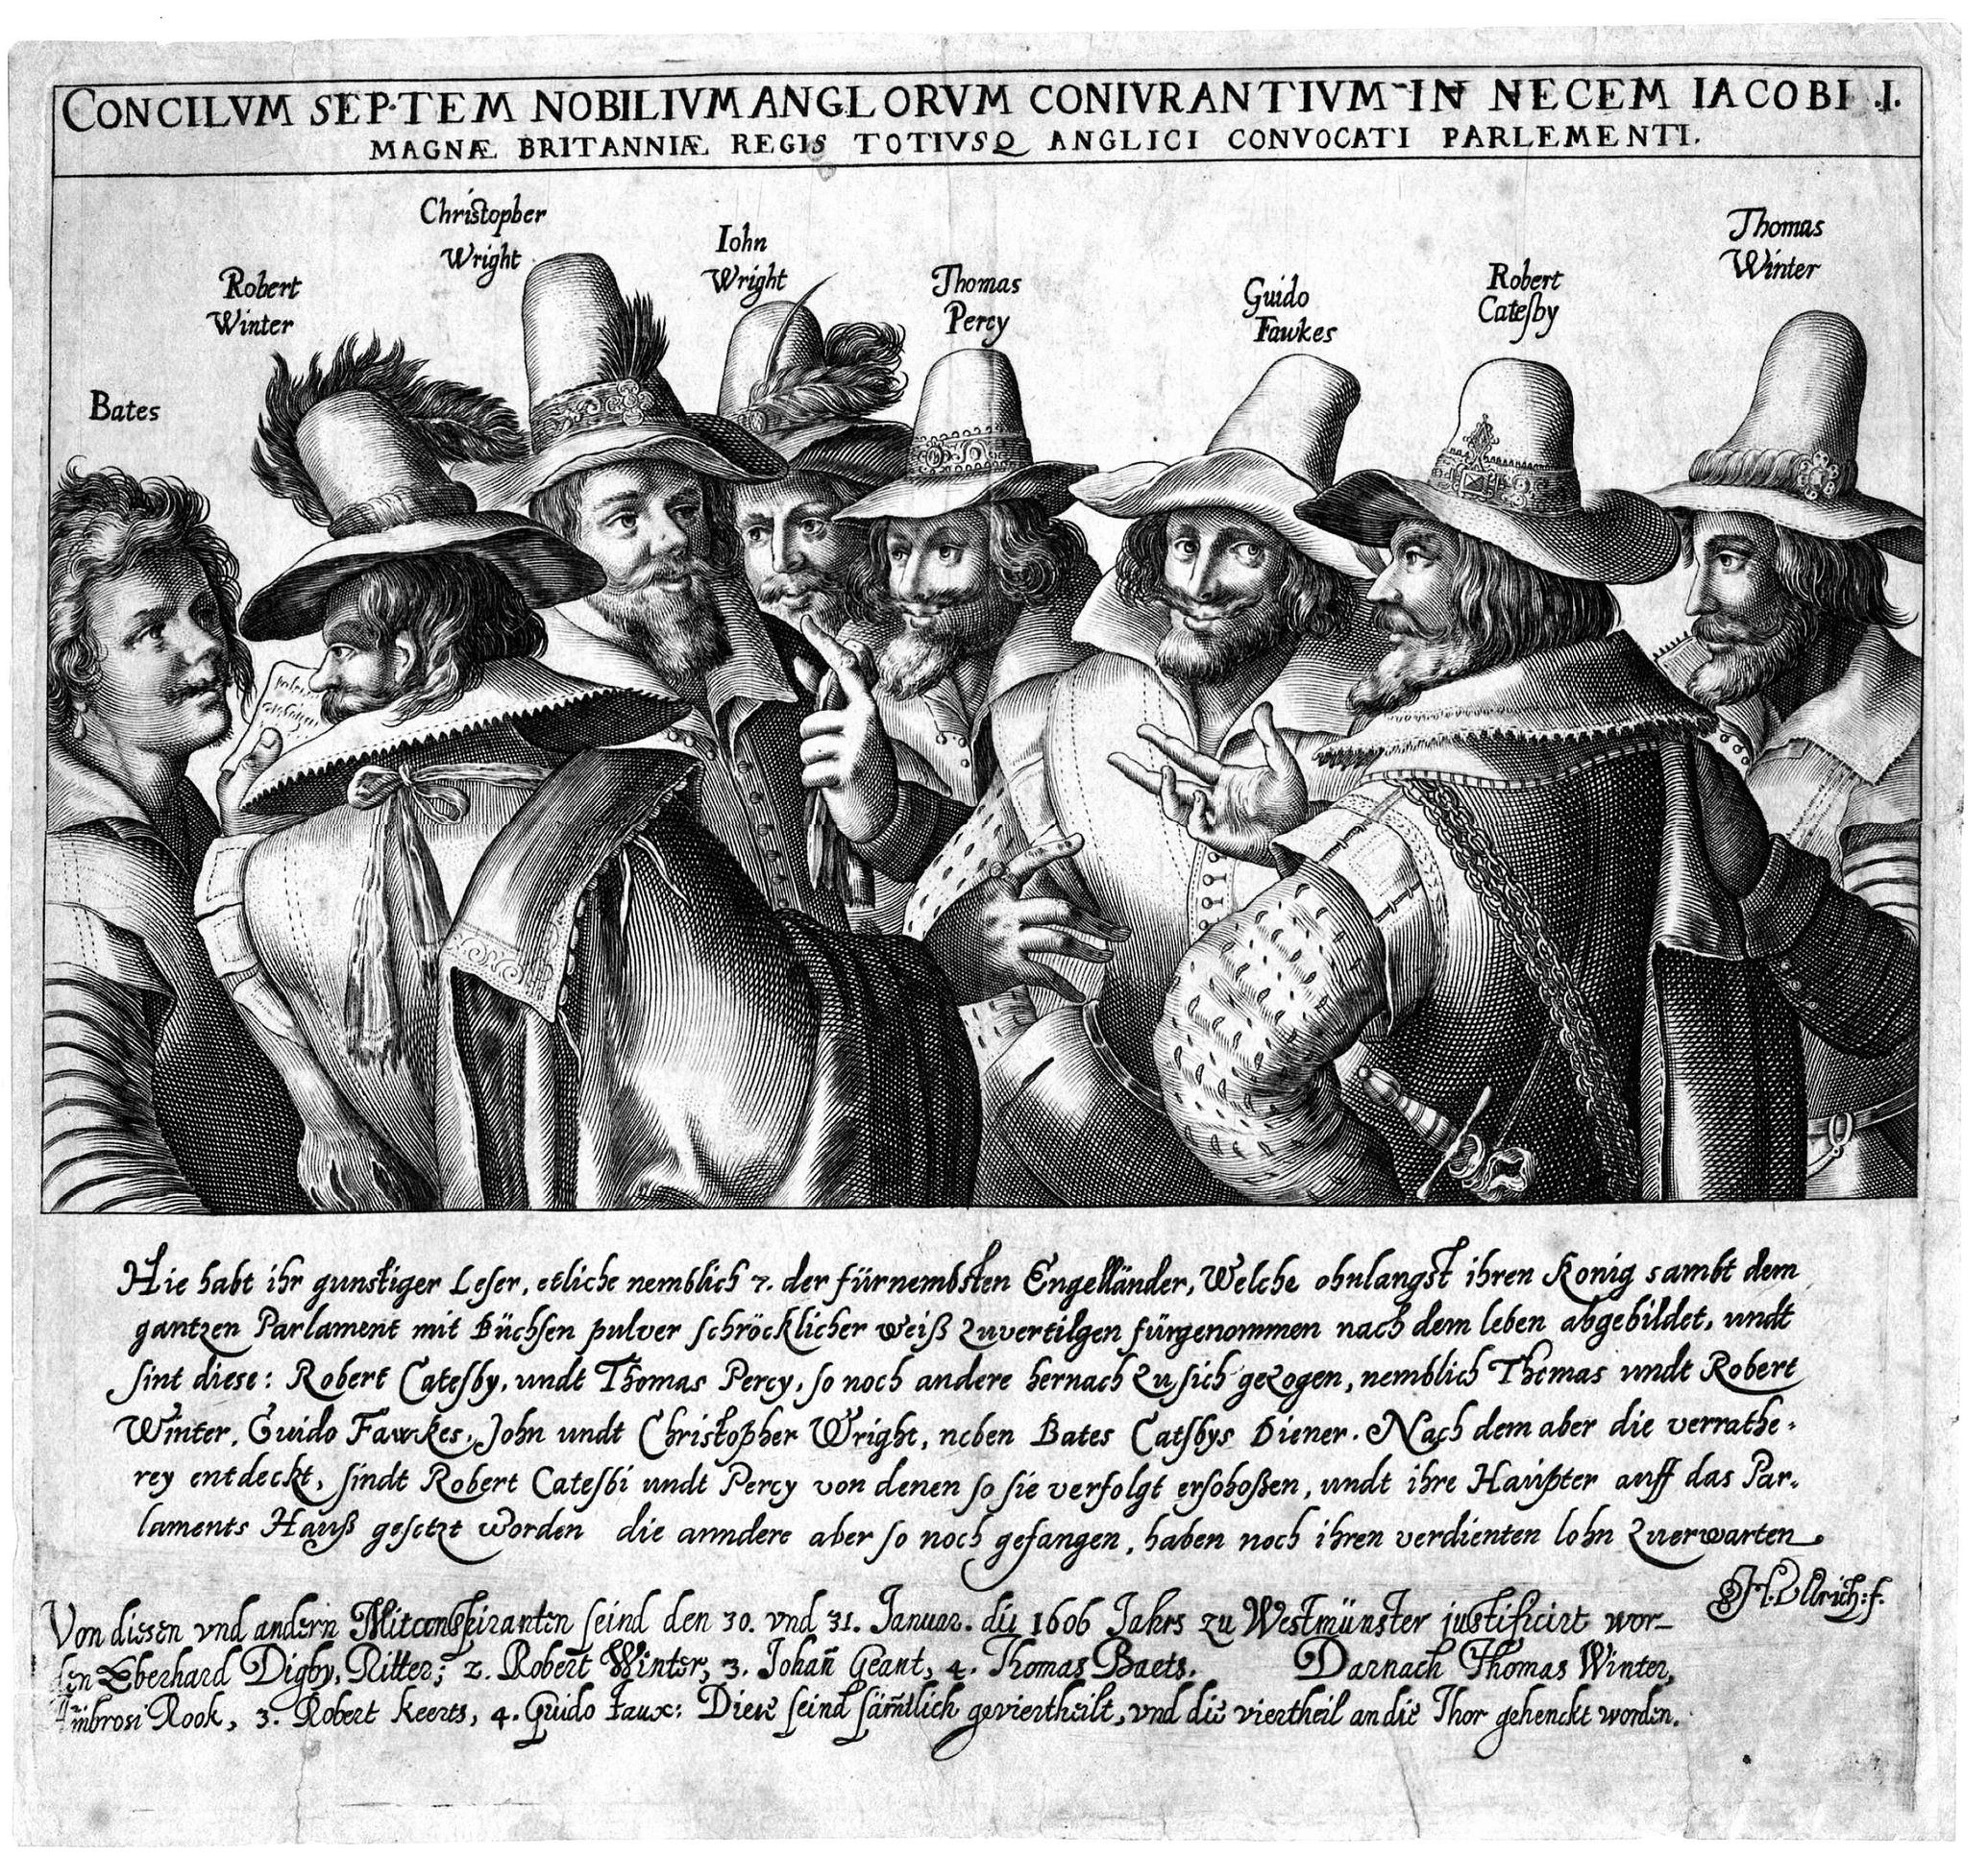 CONCILVM SEPTEM NOBILIVM ANGLORVM CONIVRANTIVM IN NECEM IACOBI .I.
MAGNÆ BRITANNIÆ REGIS TOTIVSQ ANGLICI CONVOCATI PARLEMENTI.
Bates
Robert
Winter
Christopher
Wright
Iohn
Wright
Thomas
Percy
Guido
Fawkes
Robert
Cateſby
Thomas
Winter
Hie habt ihr gunstiger Leſer, etliche nemblich 7. der fürnembsten Engelländer, Welche ohnlangst ihren König sambt dem
gantzen Parlament mit Büchſen pulver ſchröcklicher weiß zuvertilgen fürgenommen nach dem leben abgebildet, undt
ſint diese: Robert Cateſby, undt Thomas Percy, ſo noch andere hernach zu ſich gezogen, nemblich Thomas undt Robert
Winter, Guido Fawkes, John undt Christopher Wright, neben Bates Catſbys Diener. Nach dem aber die verrathe-
rey entdeckt, ſindt Robert Cateſbi undt Percy von denen ſo ſie verfolgt erſchoßen, undt ihre Haüpter auff das Par-
laments Hauß geſetzt worden die anndere aber ſo noch gefangen, haben noch ihren verdienten lohn zuerwarten
H. Vlrich: f.
Von diesen vnd andern Mitconſpiranten ſeind den 30. vnd 31. Januar. diſ 1606 Jahrs zu Westmünster juſtificirt wor-
den Eberhard Digby, Ritter; 2. Robert Winter, 3. Johañ Geant, 4. Thomas Baets. Darnach Thomas Winter,
Ambrosi Rook, 3. Robert Keerts, 4. Guido Faux: Diese ſeind ſämtlich geviertheilt, vnd die viertheil an die Thor gehenckt worden.